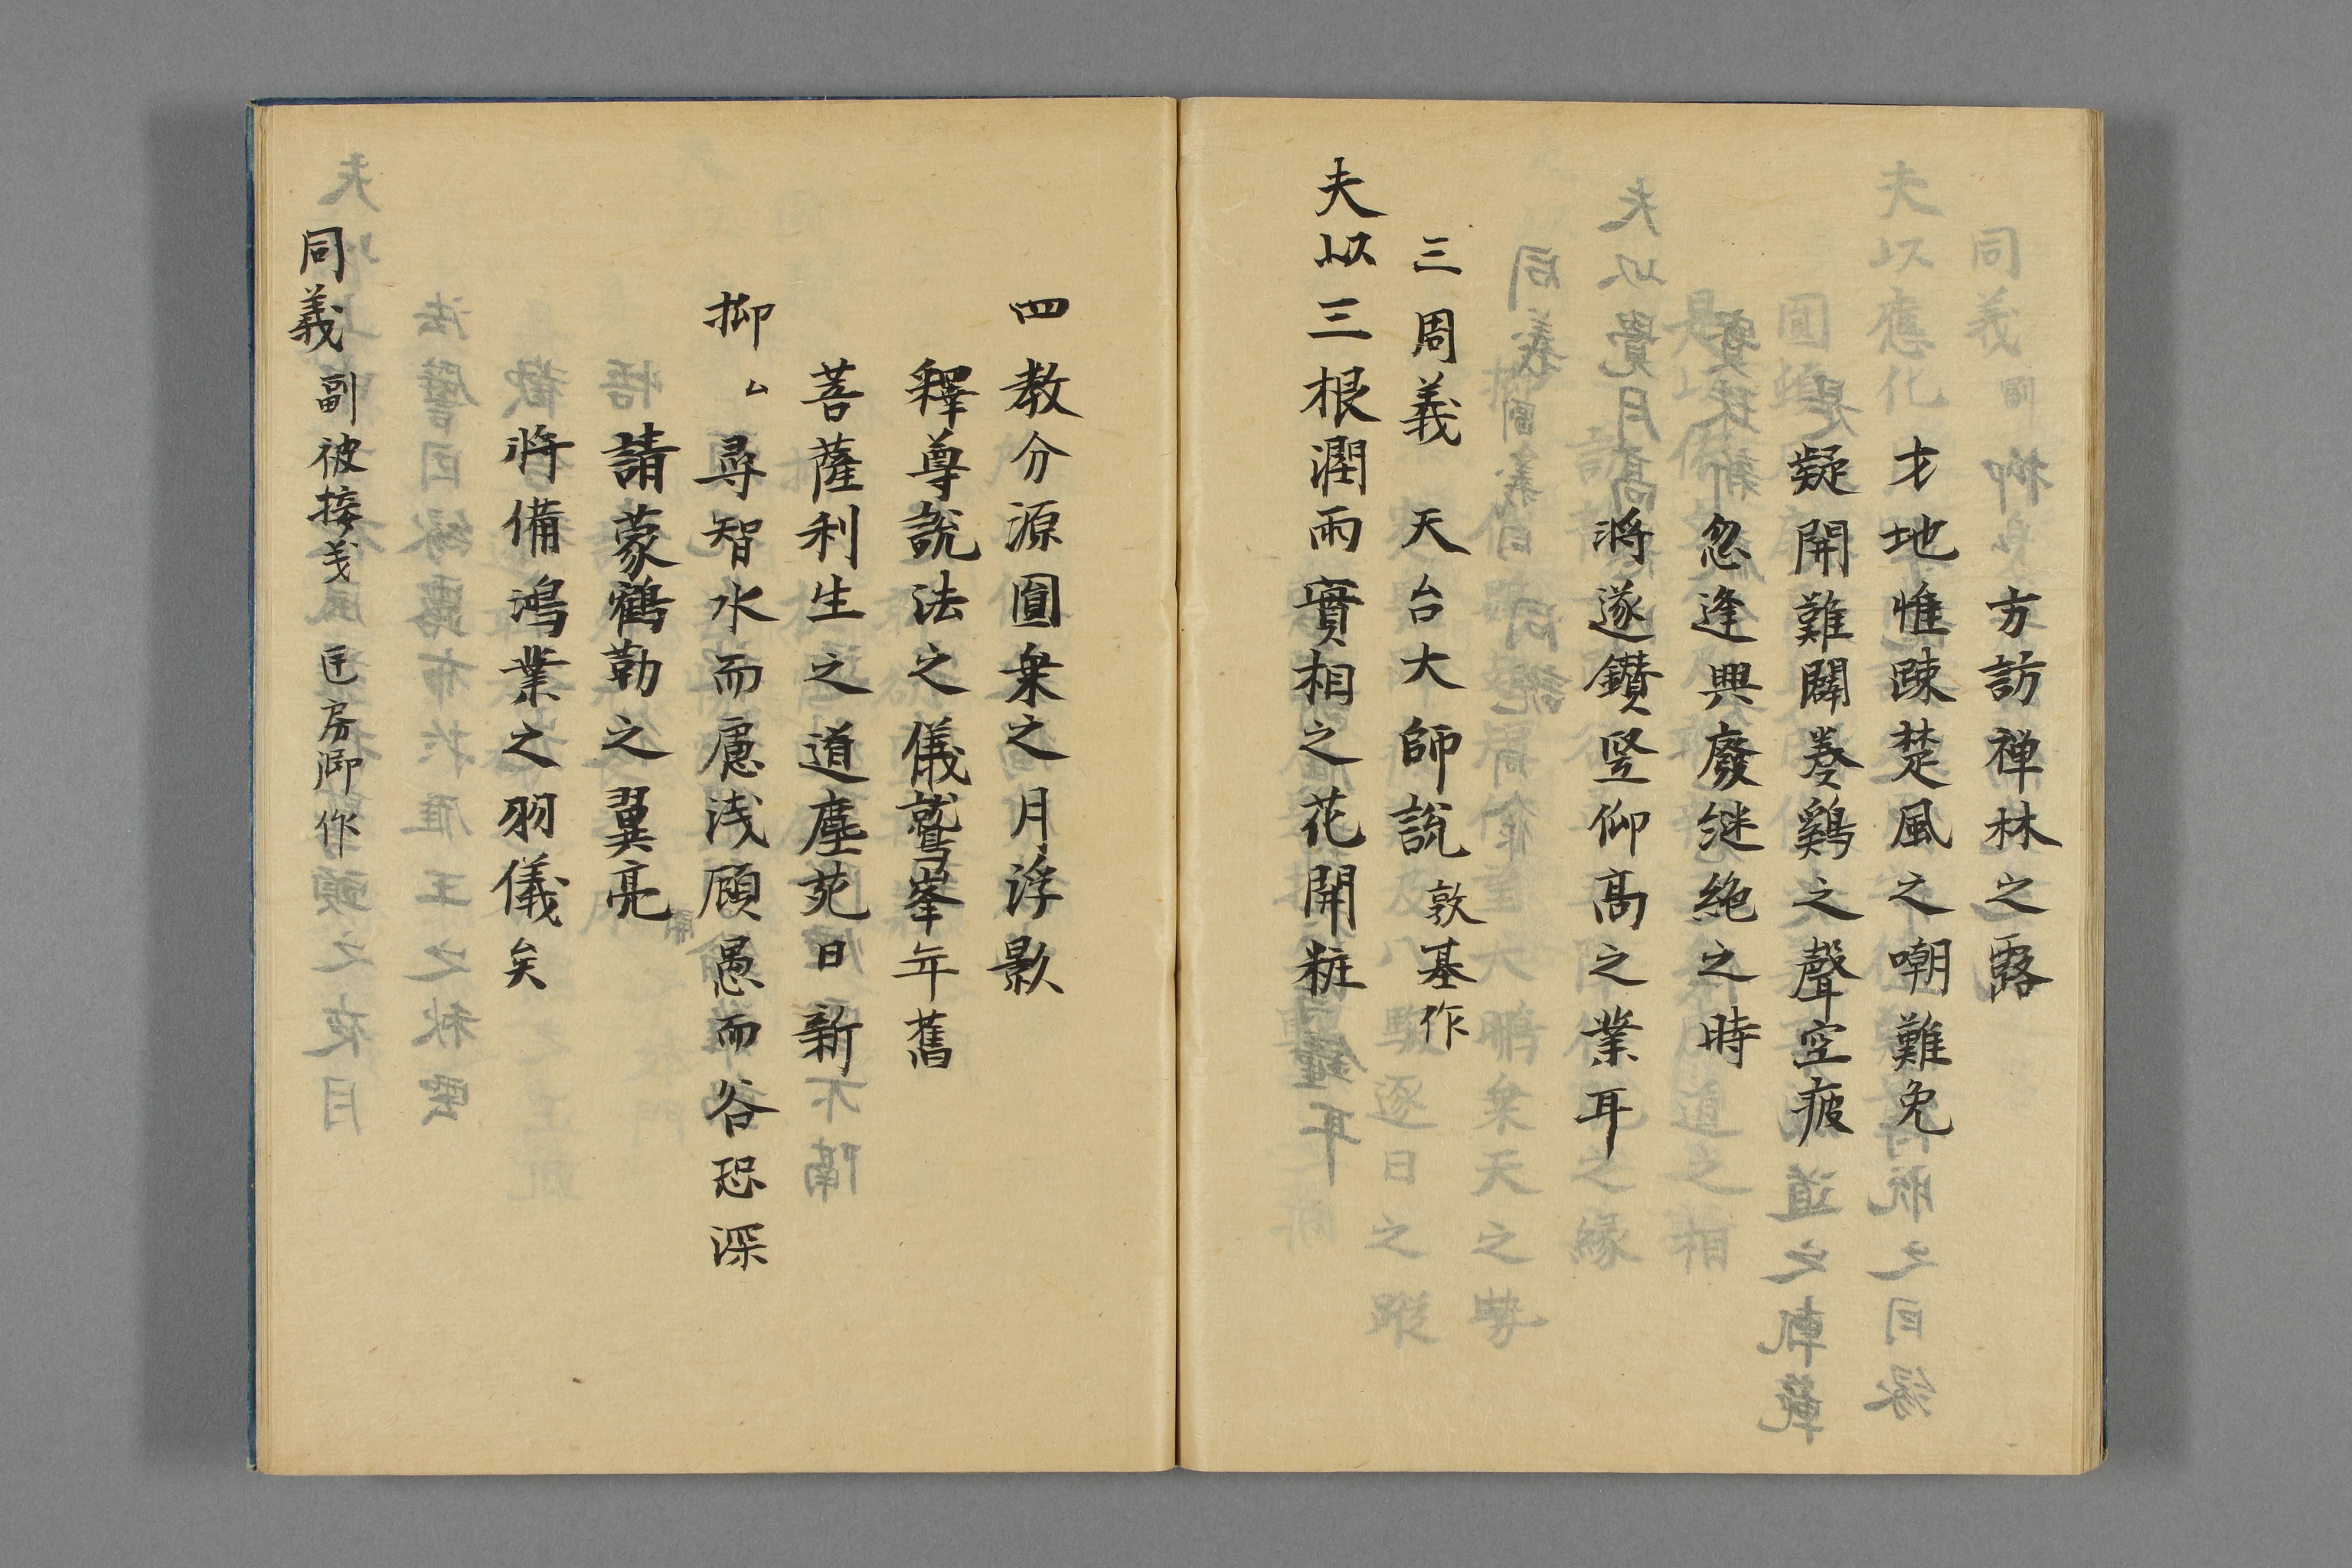 方訪禅林之露
才地惟踈楚風之嘲難免
疑開難闢巻鷄之聲空疲
忽逢興廢継絶之時
将遂鑚竪仰高之業耳
三周義 天台大師說 敦基作
夫以三根潤雨實相之花開粧
四教分源圓乗之月浮影
釋尊說法之儀鷲峯年舊
菩薩利生之道塵苑日新
抑〻尋智水而慮浅顧愚而谷恐深
請蒙鶴勒之翼亮
将備鴻業之羽儀矣
同義 副被接義 匡房卿作